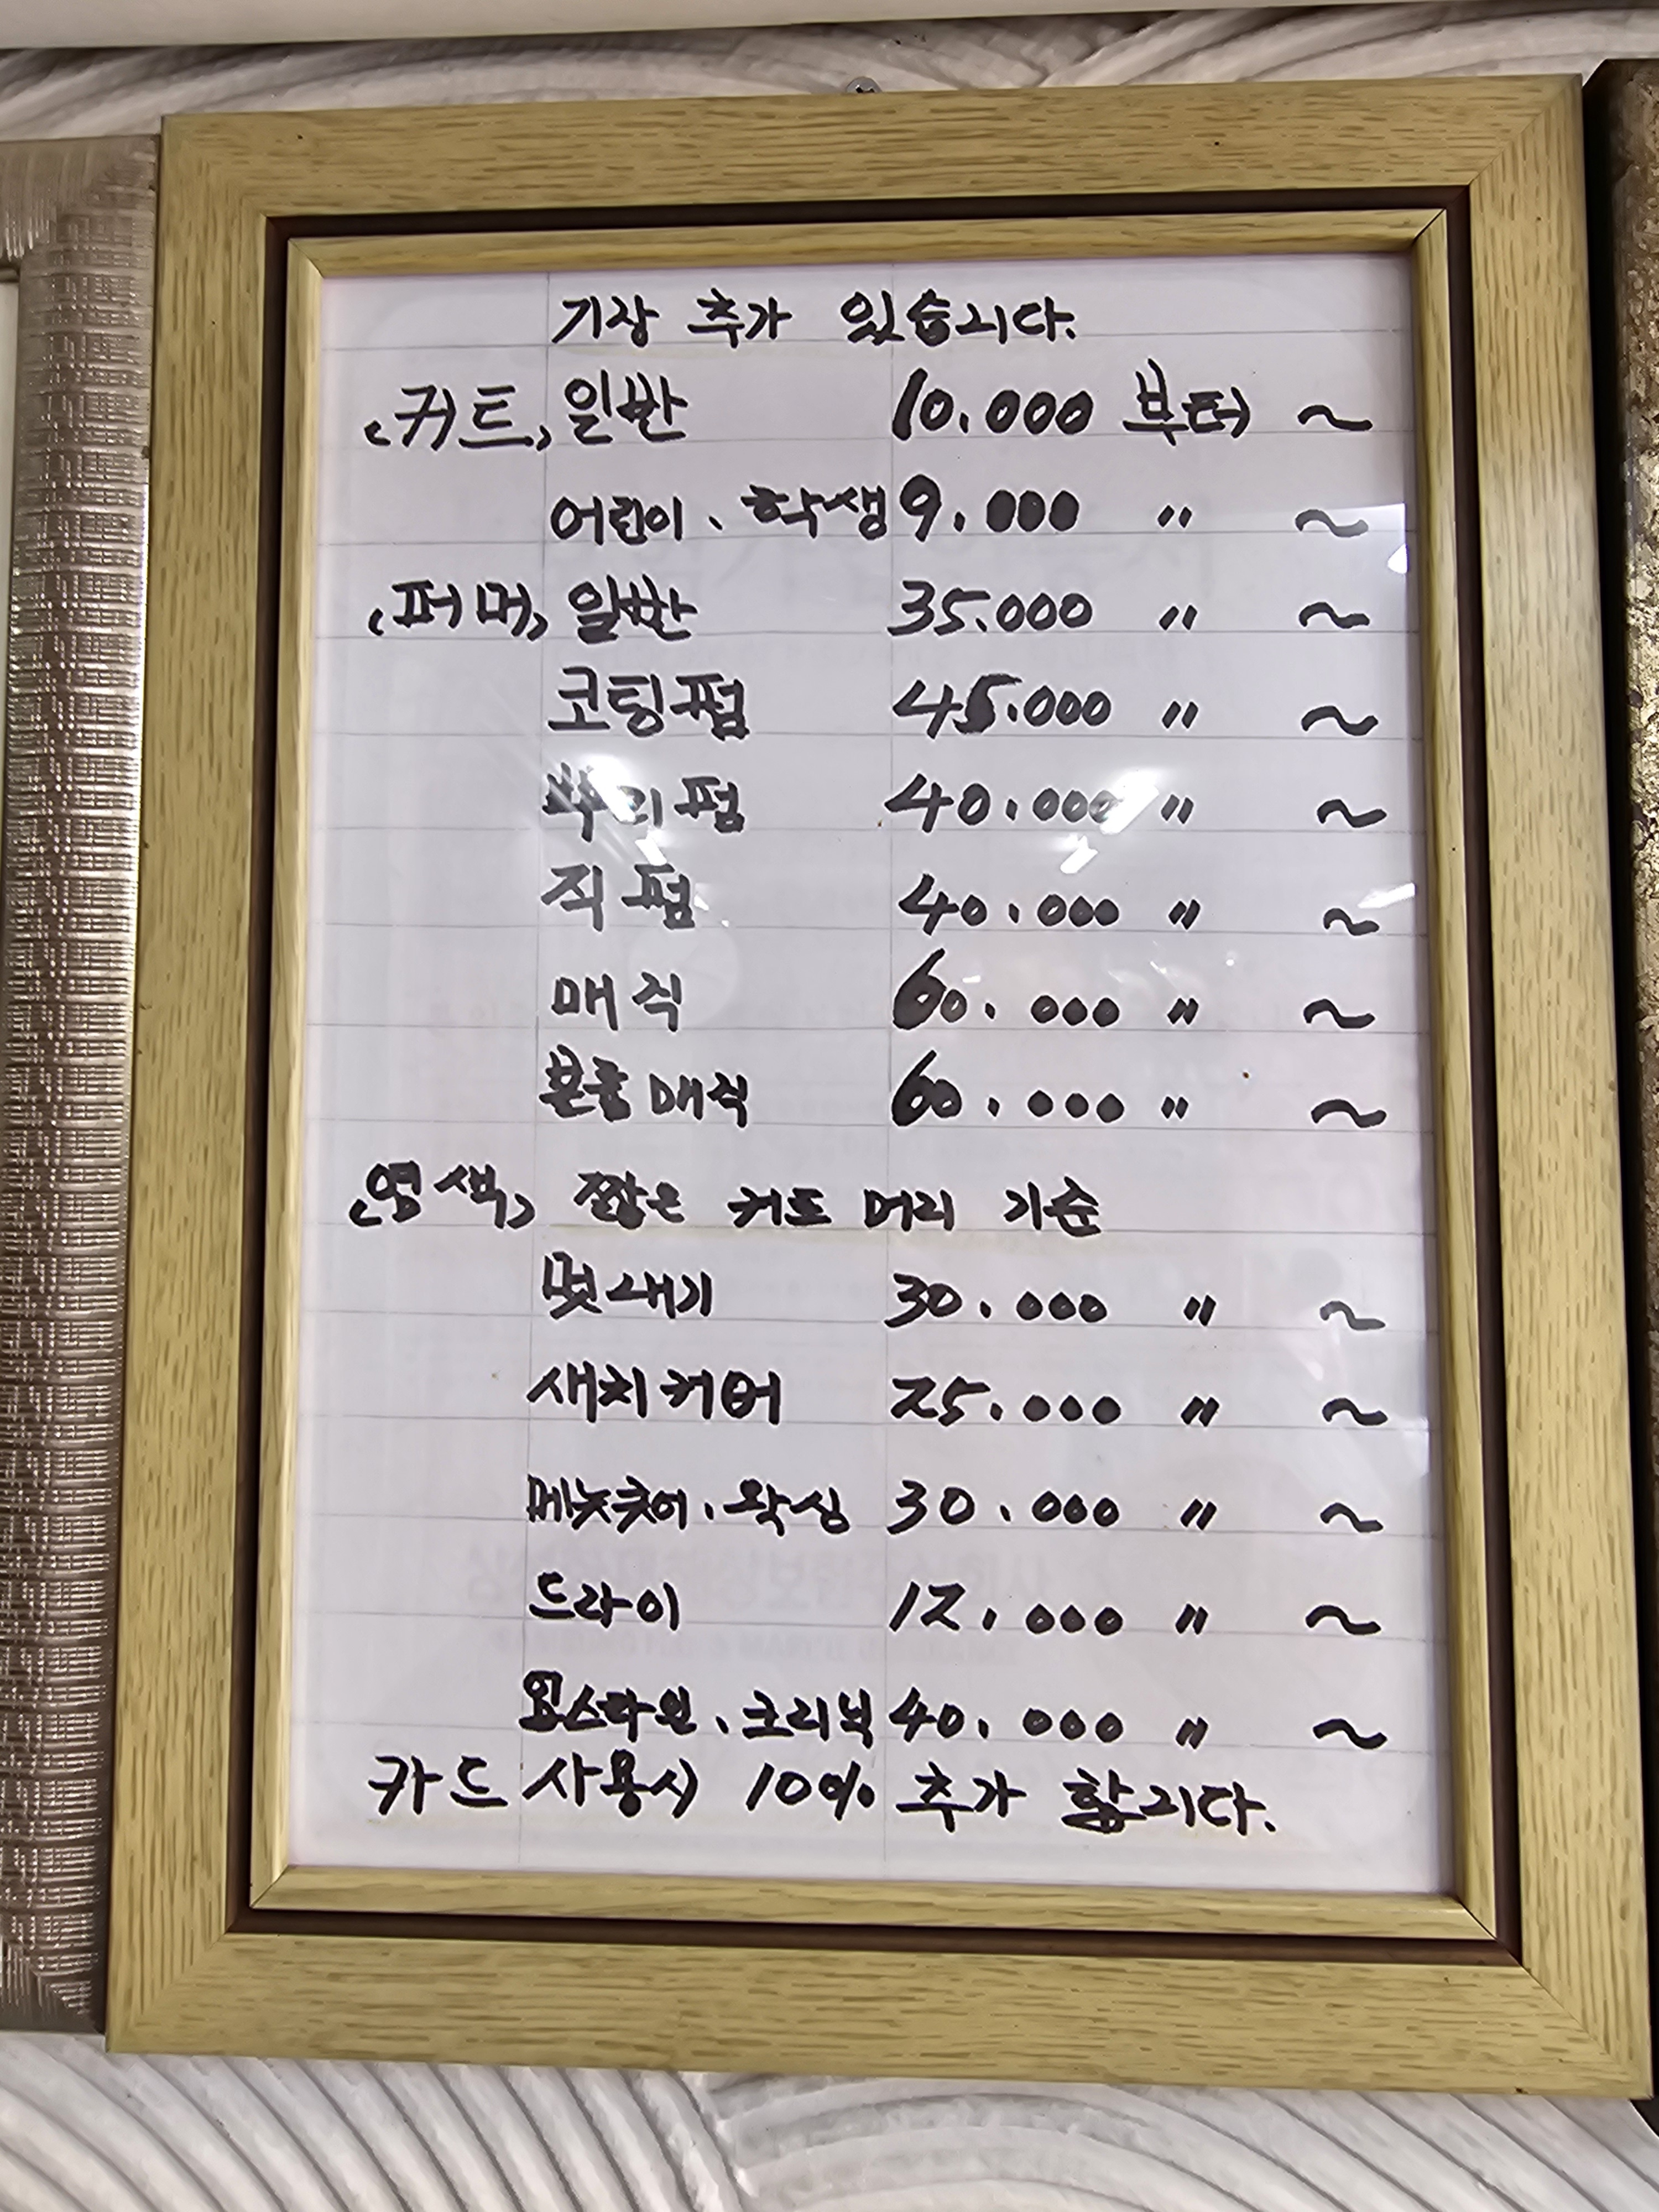 기장 추가 있습니다.
<커트> 일반 10.000 부터 ~
어린이 . 학생 9.000 〃 ~
<퍼머> 일반 35.000 〃 ~
코팅펌 45.000 〃 ~
뿌리펌 40.000 〃 ~
직펌 40.000 〃 ~
매직 60.000 〃 ~
볼륨매직 60.000 〃 ~
<염색> 짧은 커트 머리 기준
멋내기 30.000 〃 ~
새치커버 25.000 〃 ~
. 왁싱 30.000 〃 ~
드라이 12.000 〃 ~
. 크리닉 40.000 〃 ~
카드 사용시 10% 추가 합니다.